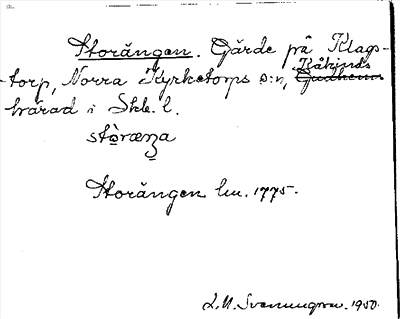 Storängen. Gärde på Klags-
torp, Norra Kyrketorps s:n, Kåkinds Gudhems
härad i Skb. l.
stòræŋa
Storängen lm. 1775.
L.M. Svanungren. 1950.